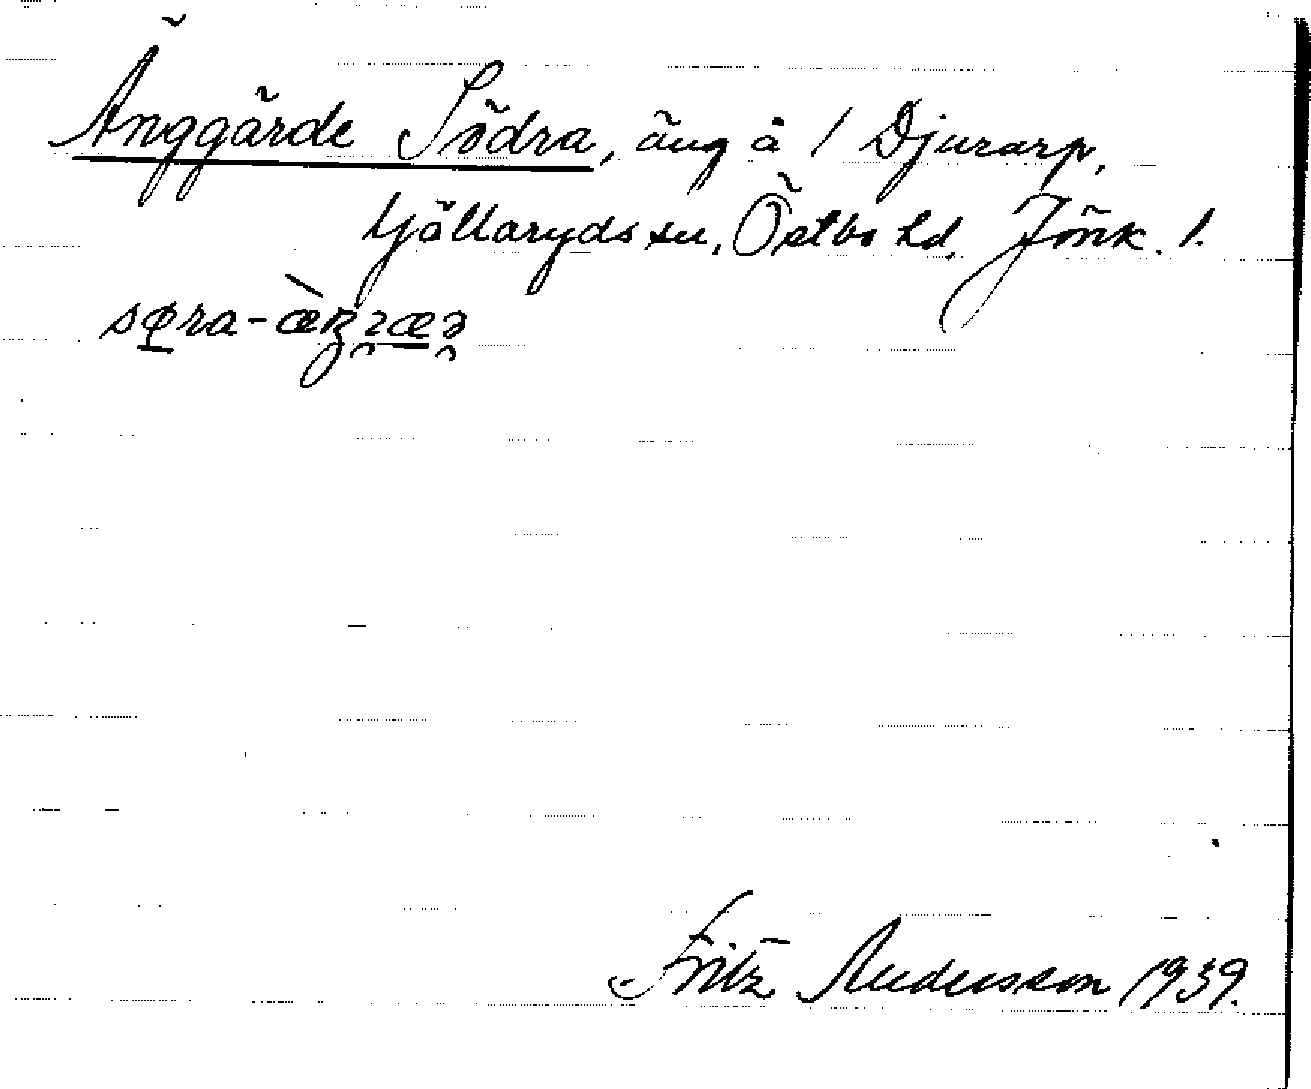 Änggärde Södra, äng å / Djurarp,
Kjällaryds sn, Östbo hd, Jönk. l.
sɵra-
Fritz Andersson 1939.